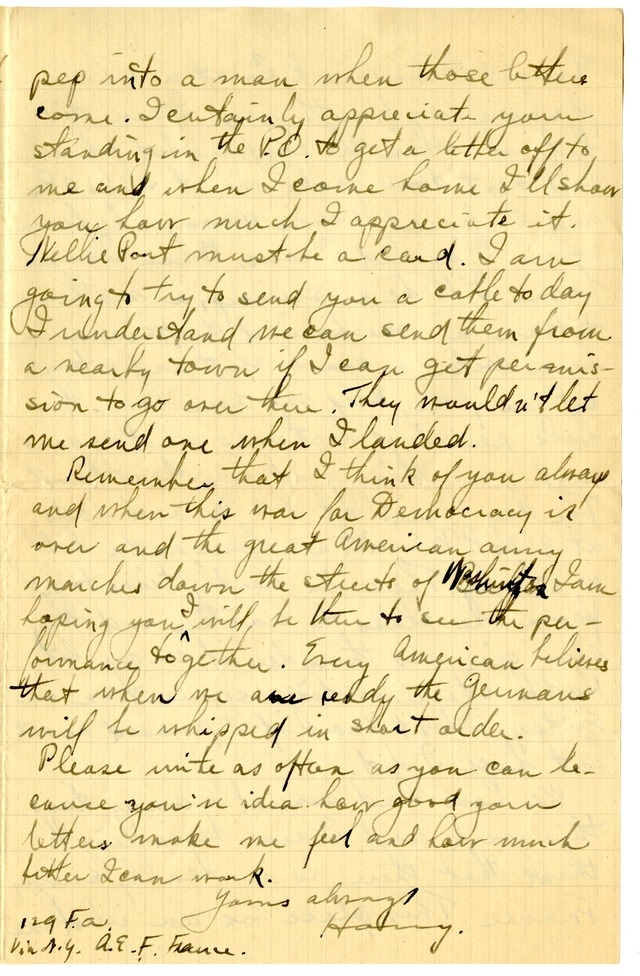 pep into a man when those letters
come. I certainly appreciate your
standing in the P.O. to get a letter off to
me and when I come home I'll show
you how much I appreciate it.
Nellie Pont must be a card. I am
going to try to send you a cable today
I understand we can send them from
a nearby town if I can get permis-
sion to go over there. They wouldn't let
me send one when I landed.
Remember that I think of you always
and when this war for Democracy is
over and the great American army
marches down the streets of Washington I am
hoping you I will be there to see the per-
formance together. Every American believes
that when we are ready the Germans
will be whipped in short order.
Please write as often as you can be-
cause you've idea how good your
letters make me feel and how much
better I can work.
Yours always
Harry.
129 F.a.
Via N.Y. A.E.F. France.